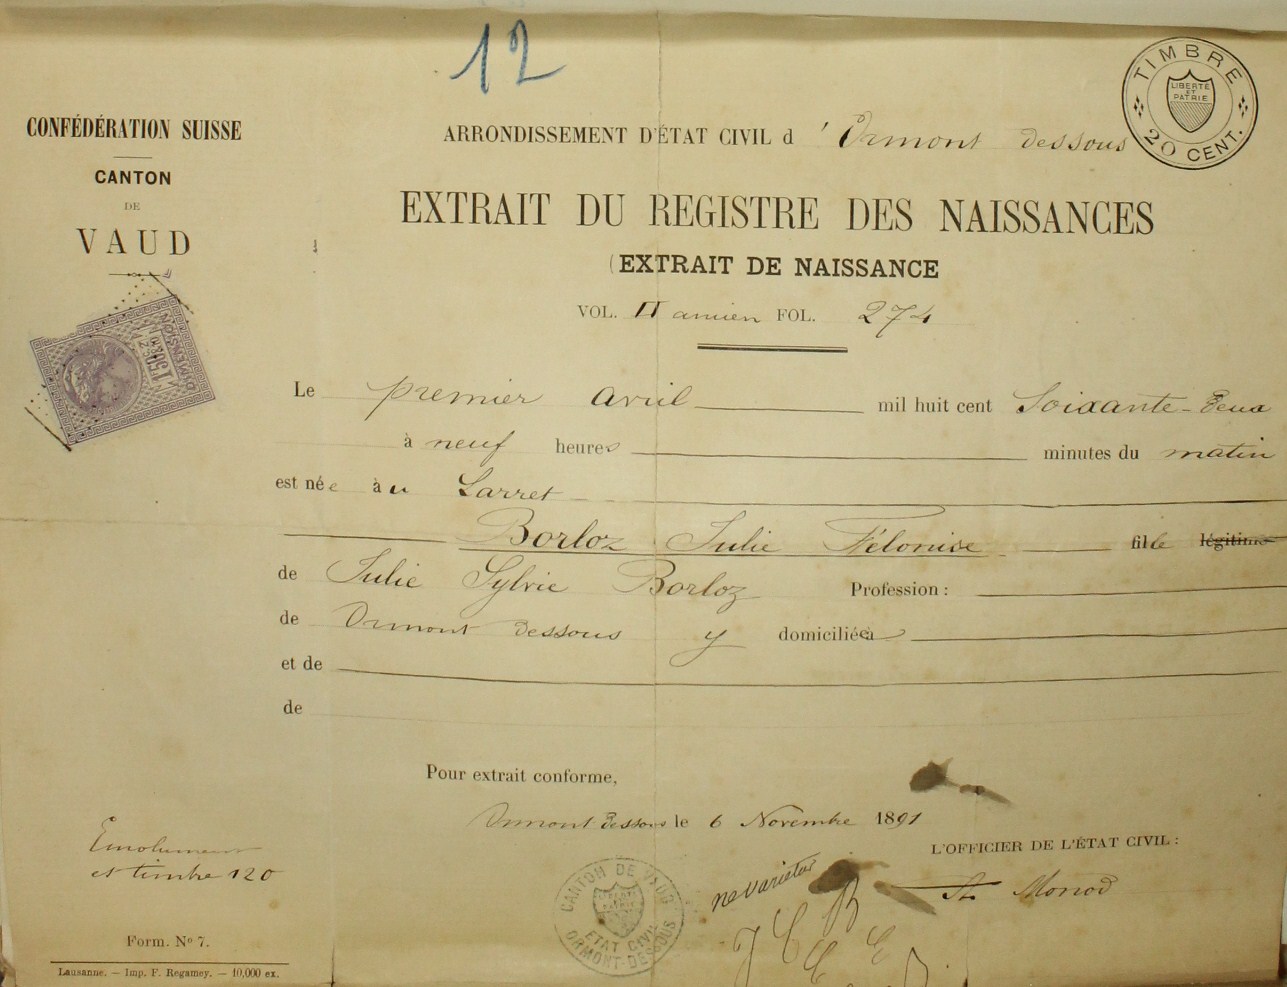 12
TIMBRE
LIBERTÉ
ET
PATRIE
20 CENT.
CONFÉDÉRATION SUISSE
CANTON
DE
VAUD
ARRONDISSEMENT D'ÉTAT CIVIL d 'Ormont dessous
EXTRAIT DU REGISTRE DES NAISSANCES
(EXTRAIT DE NAISSANCE
VOL. II ancien FOL. 274
DIMENSION
1F50
Le premier avril mil huit cent Soixante-deux
à neuf heures minutes du matin
est née au Larret
Borloz Julie Félonise fille légitime
de Julie Sylvie Borloz Profession :
de Ormont dessous y domiciliée à
et de
de
Pour extrait conforme,
Ormont dessous le 6 Novembre 1891
L'OFFICIER DE L'ÉTAT CIVIL :
A. Monod
ne varietur
Emolument
et timbre 120
CANTON DE VAUD
ETAT CIVIL
ORMONT-DESSOUS
Form. Nº 7.
Lausanne. — Imp. F. Regamey. — 10,000 ex.